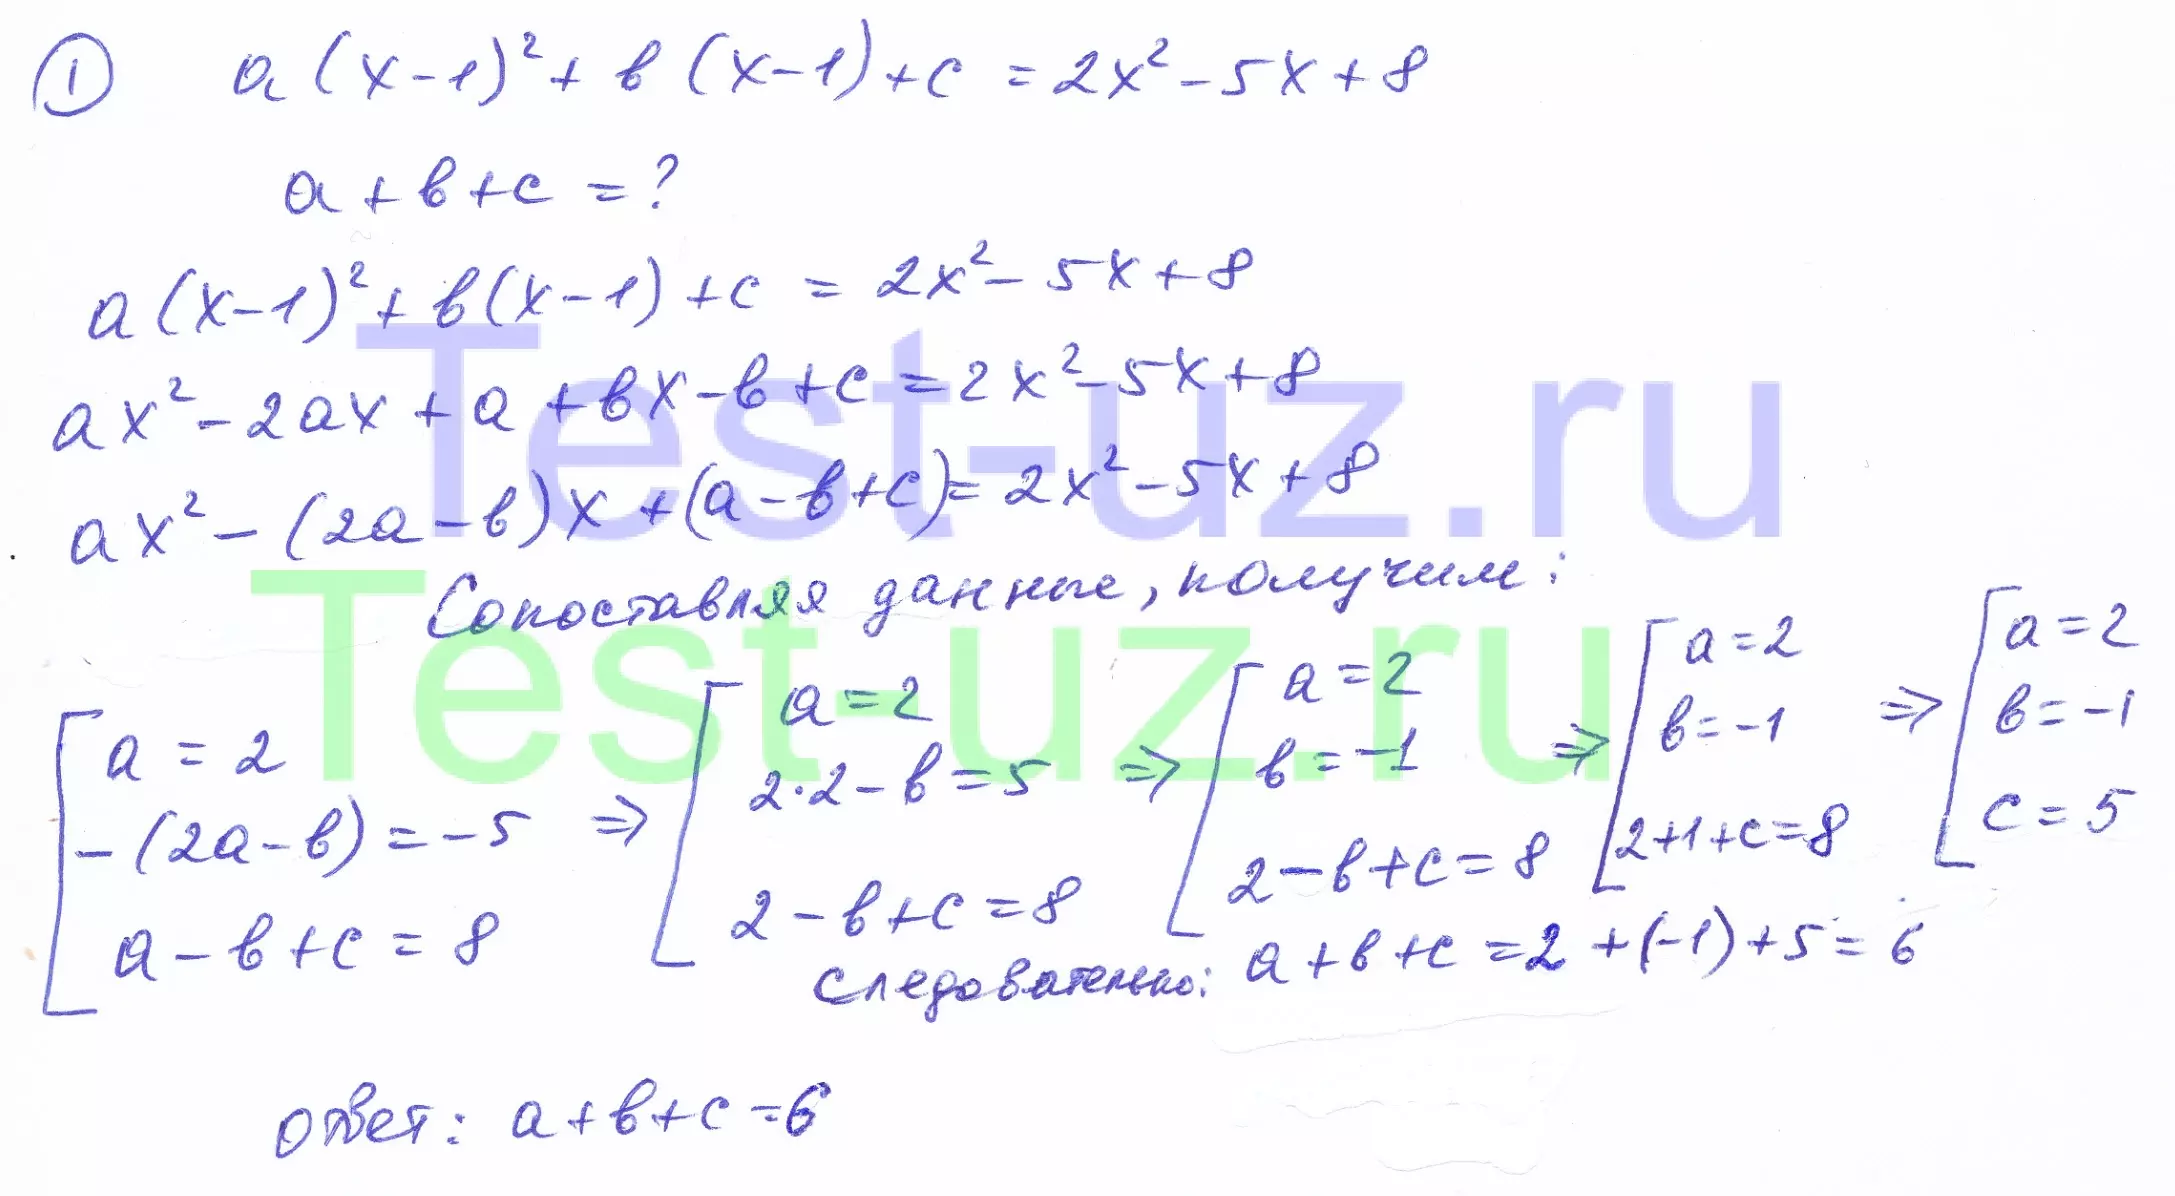 ① a(x-1)² + в(x-1) + c = 2x² - 5x + 8
a + в + c = ?
a(x-1)² + в(x-1) + c = 2x² - 5x + 8
ax² - 2ax + a + вx - в + c = 2x² - 5x + 8
ax² - (2a - в)x + (a - в + c) = 2x² - 5x + 8
Test-uz.ru
Сопоставляя данные, получим:
Test-uz.ru
[ a = 2
- (2a - в) = -5
a - в + c = 8
⇒ [ a = 2
2·2 - в = 5
2 - в + c = 8
⇒ [ a = 2
в = -1
2 - в + c = 8
⇒ [ a = 2
в = -1
2+1+c = 8
⇒ [ a = 2
в = -1
c = 5
следовательно: a + в + c = 2 + (-1) + 5 = 6
ответ: a + в + c = 6